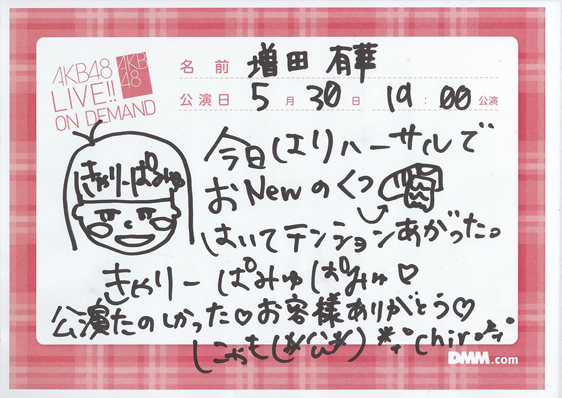 AKB48
LIVE!!
ON DEMAND
AKB
48
名前 増田 有華
公演日 5月30日 19:00公演
きゃりーぱみゅ
今日はリハーサルで
おNewのくつ
はいてテンションあがった。
きゃりーぱみゅぱみゅ♡
公演たのしかった♡お客様ありがとう♡
chiro
DMM.com